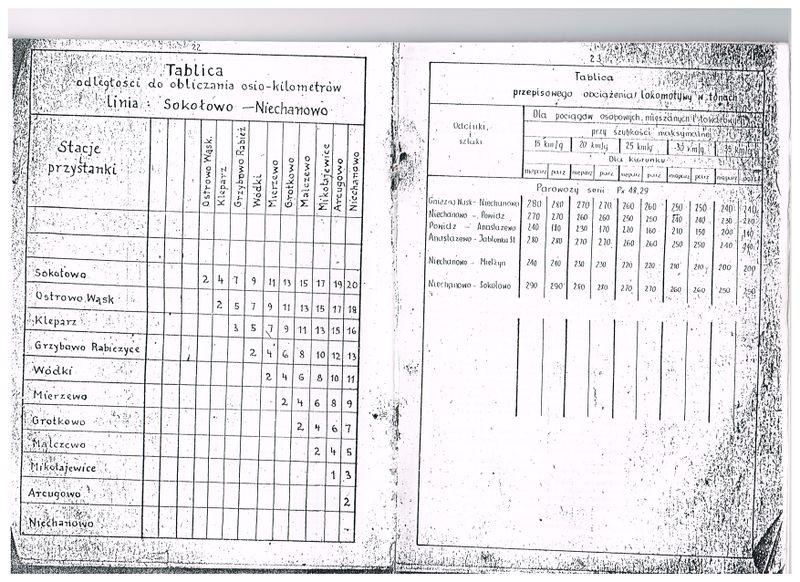 22
Tablica
odległości do obliczania osio-kilometrów
linia : Sokołowo – Niechanowo
Stacje
przystanki
Ostrowo Wąsk.
Kleparz
Grzybowo Rabież
Wódki
Mierzewo
Grotkowo
Malczewo
Mikołajewice
Arcugowo
Niechanowo
Sokołowo 2 4 7 9 11 13 15 17 19 20
Ostrowo Wąsk 2 5 7 9 11 13 15 17 18
Kleparz 3 5 7 9 11 13 15 16
Grzybowo Rabieżyce 2 4 6 8 10 12 13
Wódki 2 4 6 8 10 11
Mierzewo 2 4 6 8 9
Grotkowo 2 4 6 7
Malczewo 2 4 5
Mikołajewice 1 3
Arcugowo 2
Niechanowo
23
Tablica
przepisowego obciążenia lokomotywy w tonach
Odcinki,
szlaki
Dla pociągów osobowych, mieszanych i towarowych
przy szybkości maksymalnej
15 km/g 20 km/g 25 km/g 30 km/g 35 km/g
Dla kierunku
nieparz parz nieparz parz nieparz parz nieparz parz nieparz parz
Parowozy serii Px 48.29
Gniezno Wąsk - Niechanowo 280 280 270 270 260 260 250 250 240 240
Niechanowo - Powidz 270 270 260 260 250 250 240 240 230
Powidz - Anastazewo 240 180 230 170 220 160 210 150 200 140
Anastazewo - Jabłonka Sł 280 280 270 270 260 260 250 250 240 240
Niechanowo - Mielżyn 240 240 230 230 220 220 210 210 200 200
Niechanowo - Sokołowo 290 290 280 280 270 270 260 260 250 250